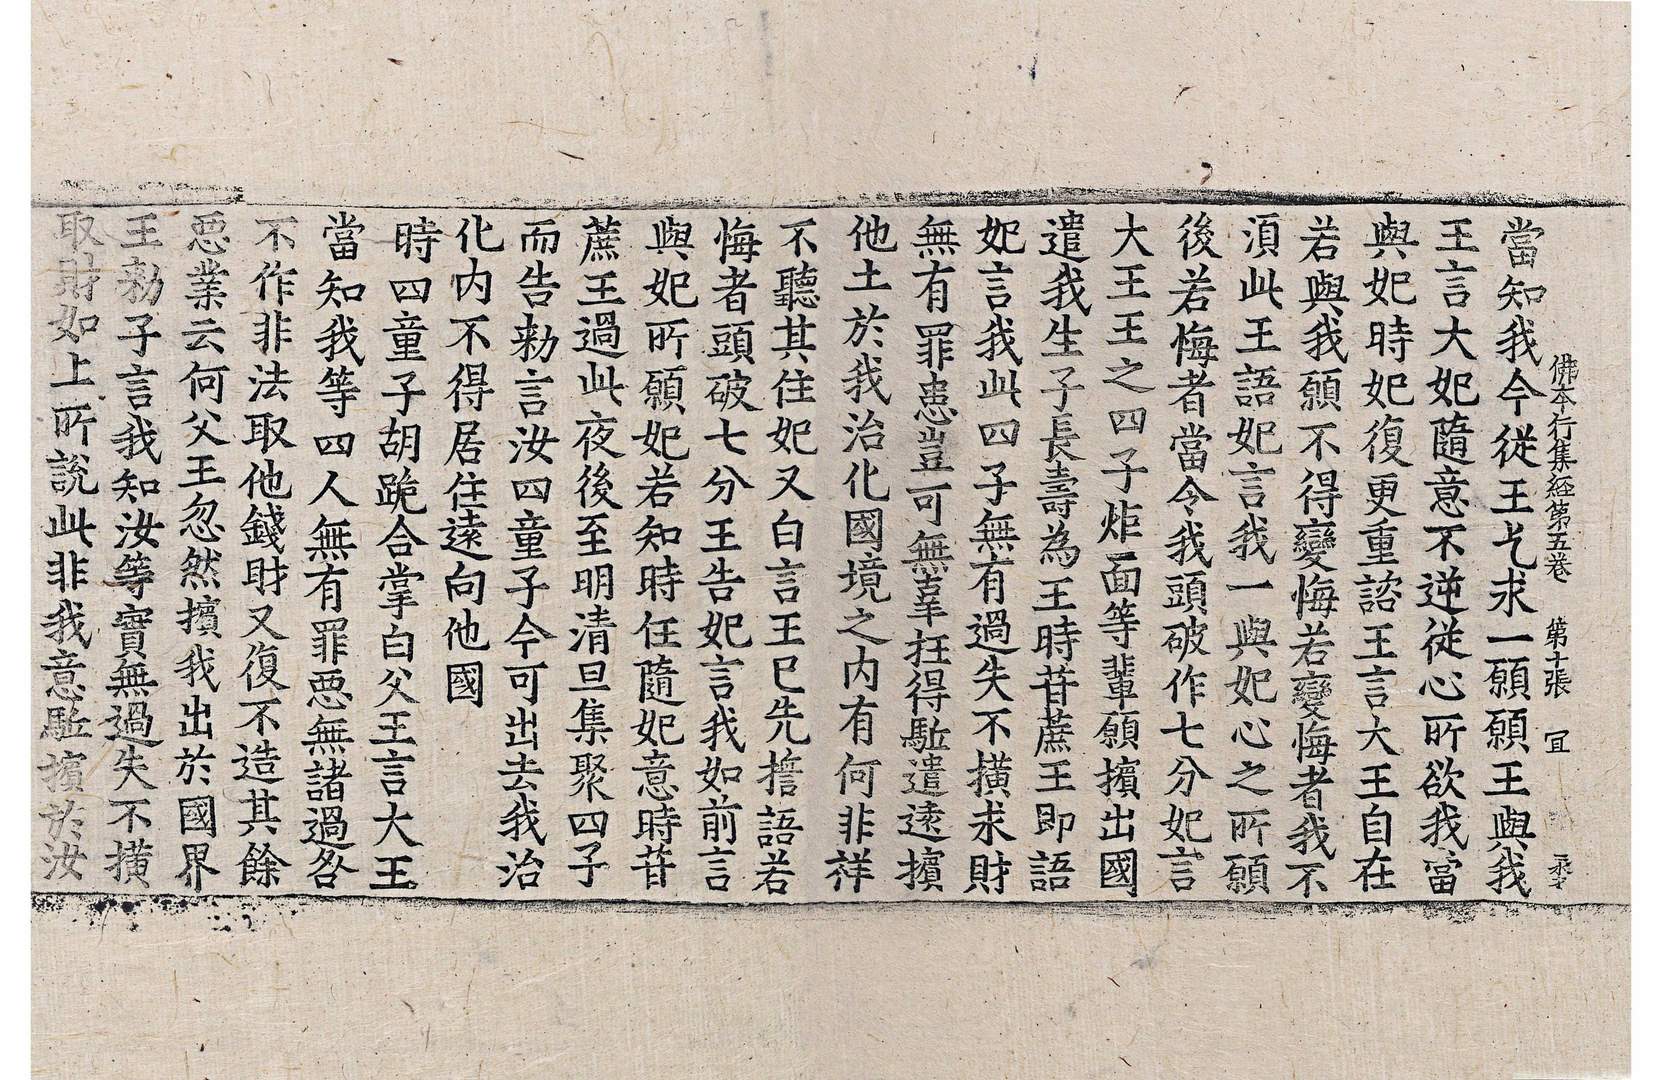 佛本行集經第五卷　第十張　冝
當知我今從王乞求一願願王與我
王言大妃隨意不逆從心所欲我當
與妃時妃復更重諮王言大王自在
若與我願不得變悔若變悔者我不
須此王語妃言我一與妃心之所願
後若悔者當令我頭破作七分妃言
大王王之四子炬面等輩願擯出國
遣我生子長壽為王時苷蔗王即語
妃言我此四子無有過失不横求財
無有罪患豈可無辜抂得駈遣遠擯
他土於我治化國境之内有何非祥
不聽其住妃又白言王已先誓語若
悔者頭破七分王告妃言我如前言
與妃所願妃若知時任隨妃意時苷
蔗王過此夜後至明清旦集聚四子
而告勑言汝四童子今可出去我治
化内不得居住遠向他國
時四童子胡跪合掌白父王言大王
當知我等四人無有罪惡無諸過咎
不作非法取他錢財又復不造其餘
惡業云何父王忽然擯我出於國界
王勑子言我知汝等實無過失不横
取財如上所說此非我意駈擯於汝